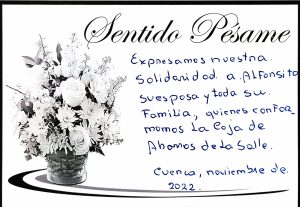 Sentido Pésame
Expresamos nuestra
Solidaridad a Alfonsita
su esposa y toda su
Familia, quienes confor
mamos La Caja de
Ahorros de la Salle.
Cuenca, noviembre de
2022.